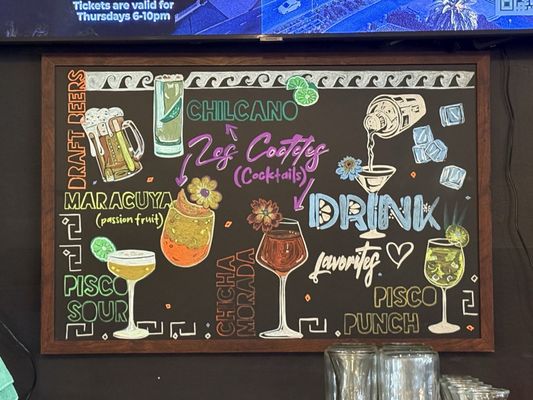 Tickets are valid for
Thursdays 6-10pm
DRAFT BEERS
CHILCANO
Los Cocteles
(Cocktails)
MARACUYA
(passion fruit)
DRINK
Favorites
PISCO
SOUR
CHICHA
MORADA
PISCO
PUNCH